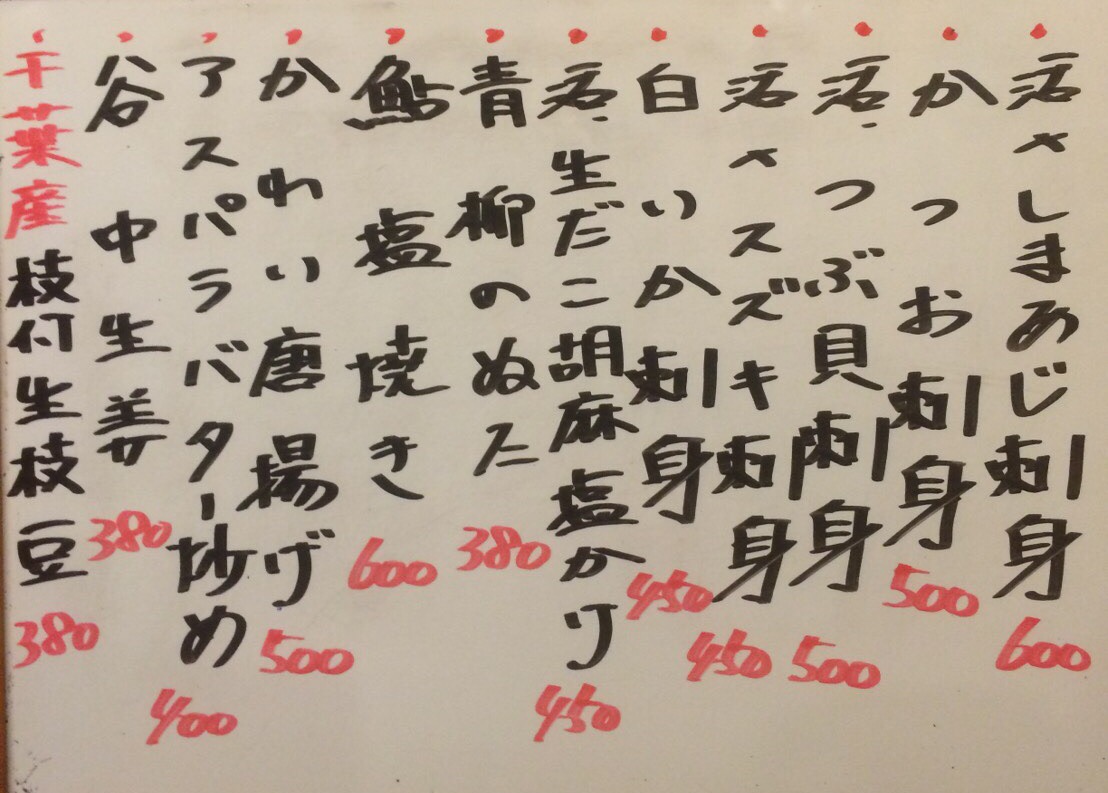 活〆しまあじ刺身 600
かつお刺身 500
活つぶ貝刺身 500
活〆スズキ刺身 450
白いか刺身 450
活生だこ胡麻塩かり 450
青柳のぬた 380
鮎塩焼き 600
かれい唐揚げ 500
アスパラバター炒め 400
谷中生姜 380
千葉産枝付生枝豆 380